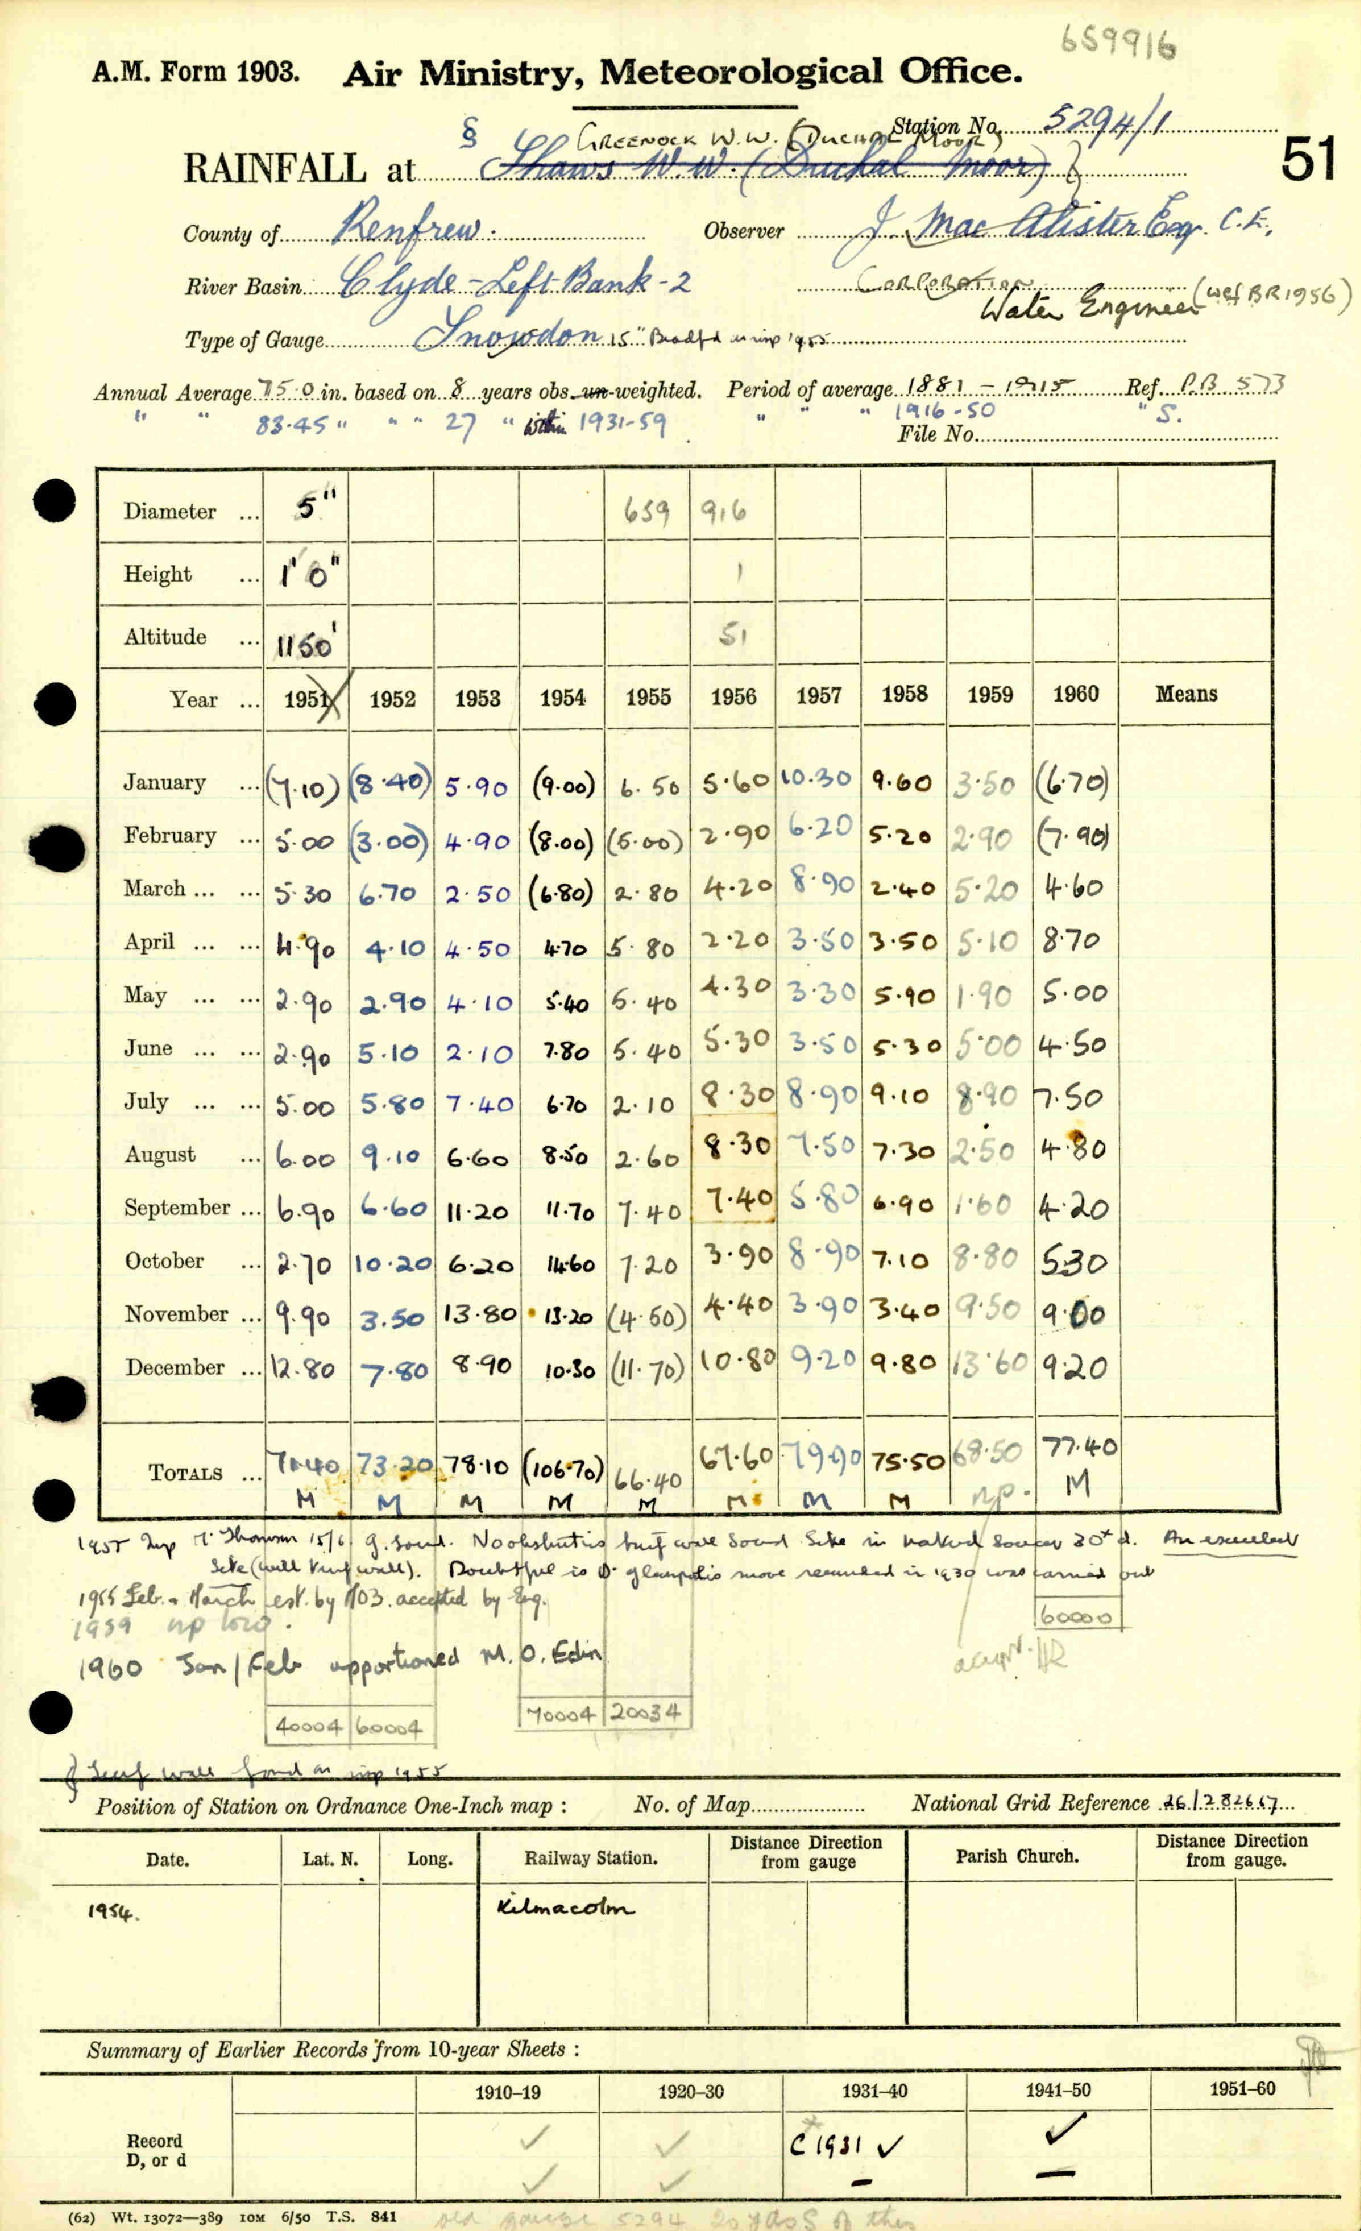 659916
A.M. Form 1903. Air Ministry, Meteorological Office.
Station No. 5294/1
§ GREENOCK W.W. (DUCHAL MOOR)
RAINFALL at Shaws W.W. (Duchal Moor) 51
County of Renfrew. Observer J. MacAlister Esq. C.E.
River Basin Clyde-Left Bank-2 CORPORATION
Water Engineer (wef BR 1956)
Type of Gauge Snowdon 15" Bradfd as insp 1955
Annual Average 75.0 in. based on 8 years obs. un-weighted. Period of average 1881-1915 Ref. P.B 573
" " 83.45 " " " 27 " within 1931-59 " " " 1916-50 " S.
File No.
Diameter ... 5" 659 916
Height ... 1' 0" 1
Altitude ... 1150' 51
Year ... 1951 1952 1953 1954 1955 1956 1957 1958 1959 1960 Means
January ... (7.10) (8.40) 5.90 (9.00) 6.50 5.60 10.30 9.60 3.50 (6.70)
February ... 5.00 (3.00) 4.90 (8.00) (5.00) 2.90 6.20 5.20 2.90 (7.90)
March ... ... 5.30 6.70 2.50 (6.80) 2.80 4.20 8.90 2.40 5.20 4.60
April ... ... 4.90 4.10 4.50 4.70 5.80 2.20 3.50 3.50 5.10 8.70
May ... ... 2.90 2.90 4.10 5.40 5.40 4.30 3.30 5.90 1.90 5.00
June ... ... 2.90 5.10 2.10 7.80 5.40 5.30 3.50 5.30 5.00 4.50
July ... ... 5.00 5.80 7.40 6.70 2.10 8.30 8.90 9.10 8.90 7.50
August ... 6.00 9.10 6.60 8.50 2.60 8.30 7.50 7.30 2.50 4.80
September ... 6.90 6.60 11.20 11.70 7.40 7.40 5.80 6.90 1.60 4.20
October ... 2.70 10.20 6.20 14.60 7.20 3.90 8.90 7.10 8.80 5.30
November ... 9.90 3.50 13.80 13.20 (4.50) 4.40 3.90 3.40 9.50 9.00
December ... 12.80 7.80 8.90 10.30 (11.70) 10.80 9.20 9.80 13.60 9.20
TOTALS ... 71.40 73.20 78.10 (106.70) 66.40 67.60 79.90 75.50 68.50 77.40
M M M M M M M M np. M
1955 Insp Mr Thomson 15/6 g. sound. No obstns turf wall sound Site in naked 30+ d. An excellent
Site (with turf wall). Doubtful is Dr move in 1930 was carried out
1955 Feb. - March est. by MO3. accepted by Eng.
60000
1959 np
1960 Jan/Feb apportioned M.O. Edin
40004 60004 70004 20034
§ Turf wall found as insp 1955
Position of Station on Ordnance One-Inch map : No. of Map National Grid Reference 26/282667
Date. Lat. N. Long. Railway Station. Distance Direction from gauge Parish Church. Distance Direction from gauge.
1954. Kilmacolm
Summary of Earlier Records from 10-year Sheets :
1910-19 1920-30 1931-40 1941-50 1951-60
Record ✓ ✓ C 1931 ✓ ✓
D, or d ✓ ✓ – –
(62) Wt. 13072—389 10M 6/50 T.S. 841 old gauge 5294 20 yds S of this